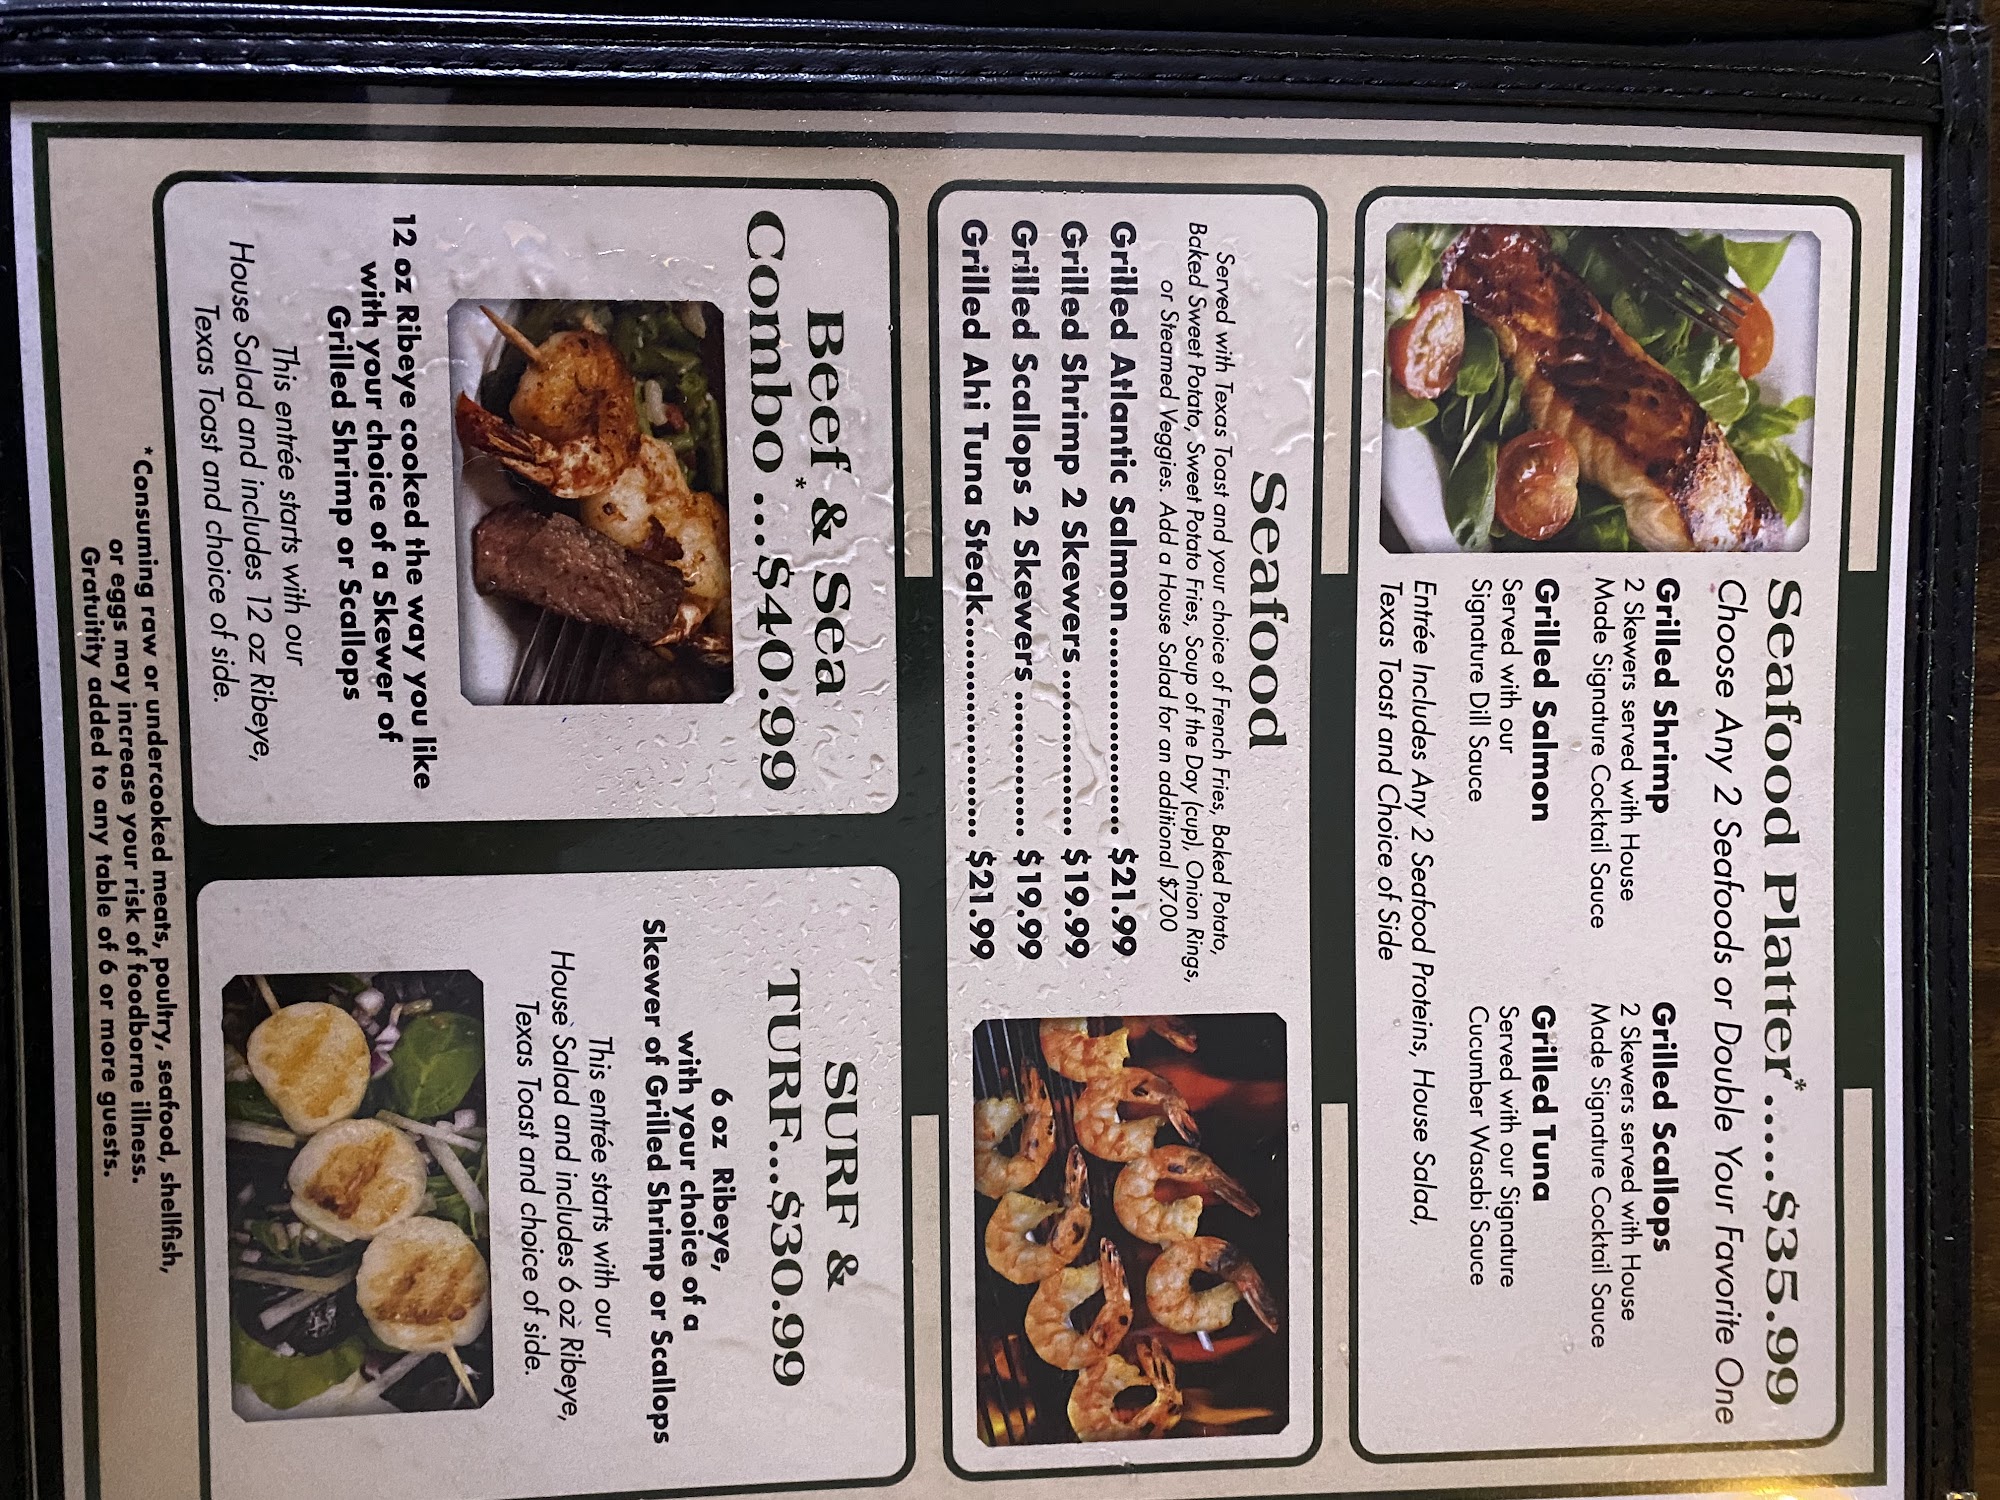 Seafood Platter*.....$35.99
Choose Any 2 Seafoods or Double Your Favorite One
Grilled Shrimp
2 Skewers served with House
Made Signature Cocktail Sauce
Grilled Scallops
2 Skewers served with House
Made Signature Cocktail Sauce
Grilled Salmon
Served with our
Signature Dill Sauce
Grilled Tuna
Served with our Signature
Cucumber Wasabi Sauce
Entrée Includes Any 2 Seafood Proteins, House Salad,
Texas Toast and Choice of Side
Seafood
Served with Texas Toast and your choice of French Fries, Baked Potato,
Baked Sweet Potato, Sweet Potato Fries, Soup of the Day (cup), Onion Rings,
or Steamed Veggies. Add a House Salad for an additional $7.00
Grilled Atlantic Salmon ...................... $21.99
Grilled Shrimp 2 Skewers .................. $19.99
Grilled Scallops 2 Skewers ............... $19.99
Grilled Ahi Tuna Steak....................... $21.99
Beef & Sea
Combo*...$40.99
12 oz Ribeye cooked the way you like
with your choice of a Skewer of
Grilled Shrimp or Scallops
This entrée starts with our
House Salad and includes 12 oz Ribeye,
Texas Toast and choice of side.
SURF &
TURF...$30.99
6 oz Ribeye,
with your choice of a
Skewer of Grilled Shrimp or Scallops
This entrée starts with our
House Salad and includes 6 oz Ribeye,
Texas Toast and choice of side.
*Consuming raw or undercooked meats, poultry, seafood, shellfish,
or eggs may increase your risk of foodborne illness.
Gratuitity added to any table of 6 or more guests.